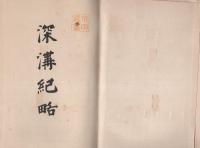 深溝紀略